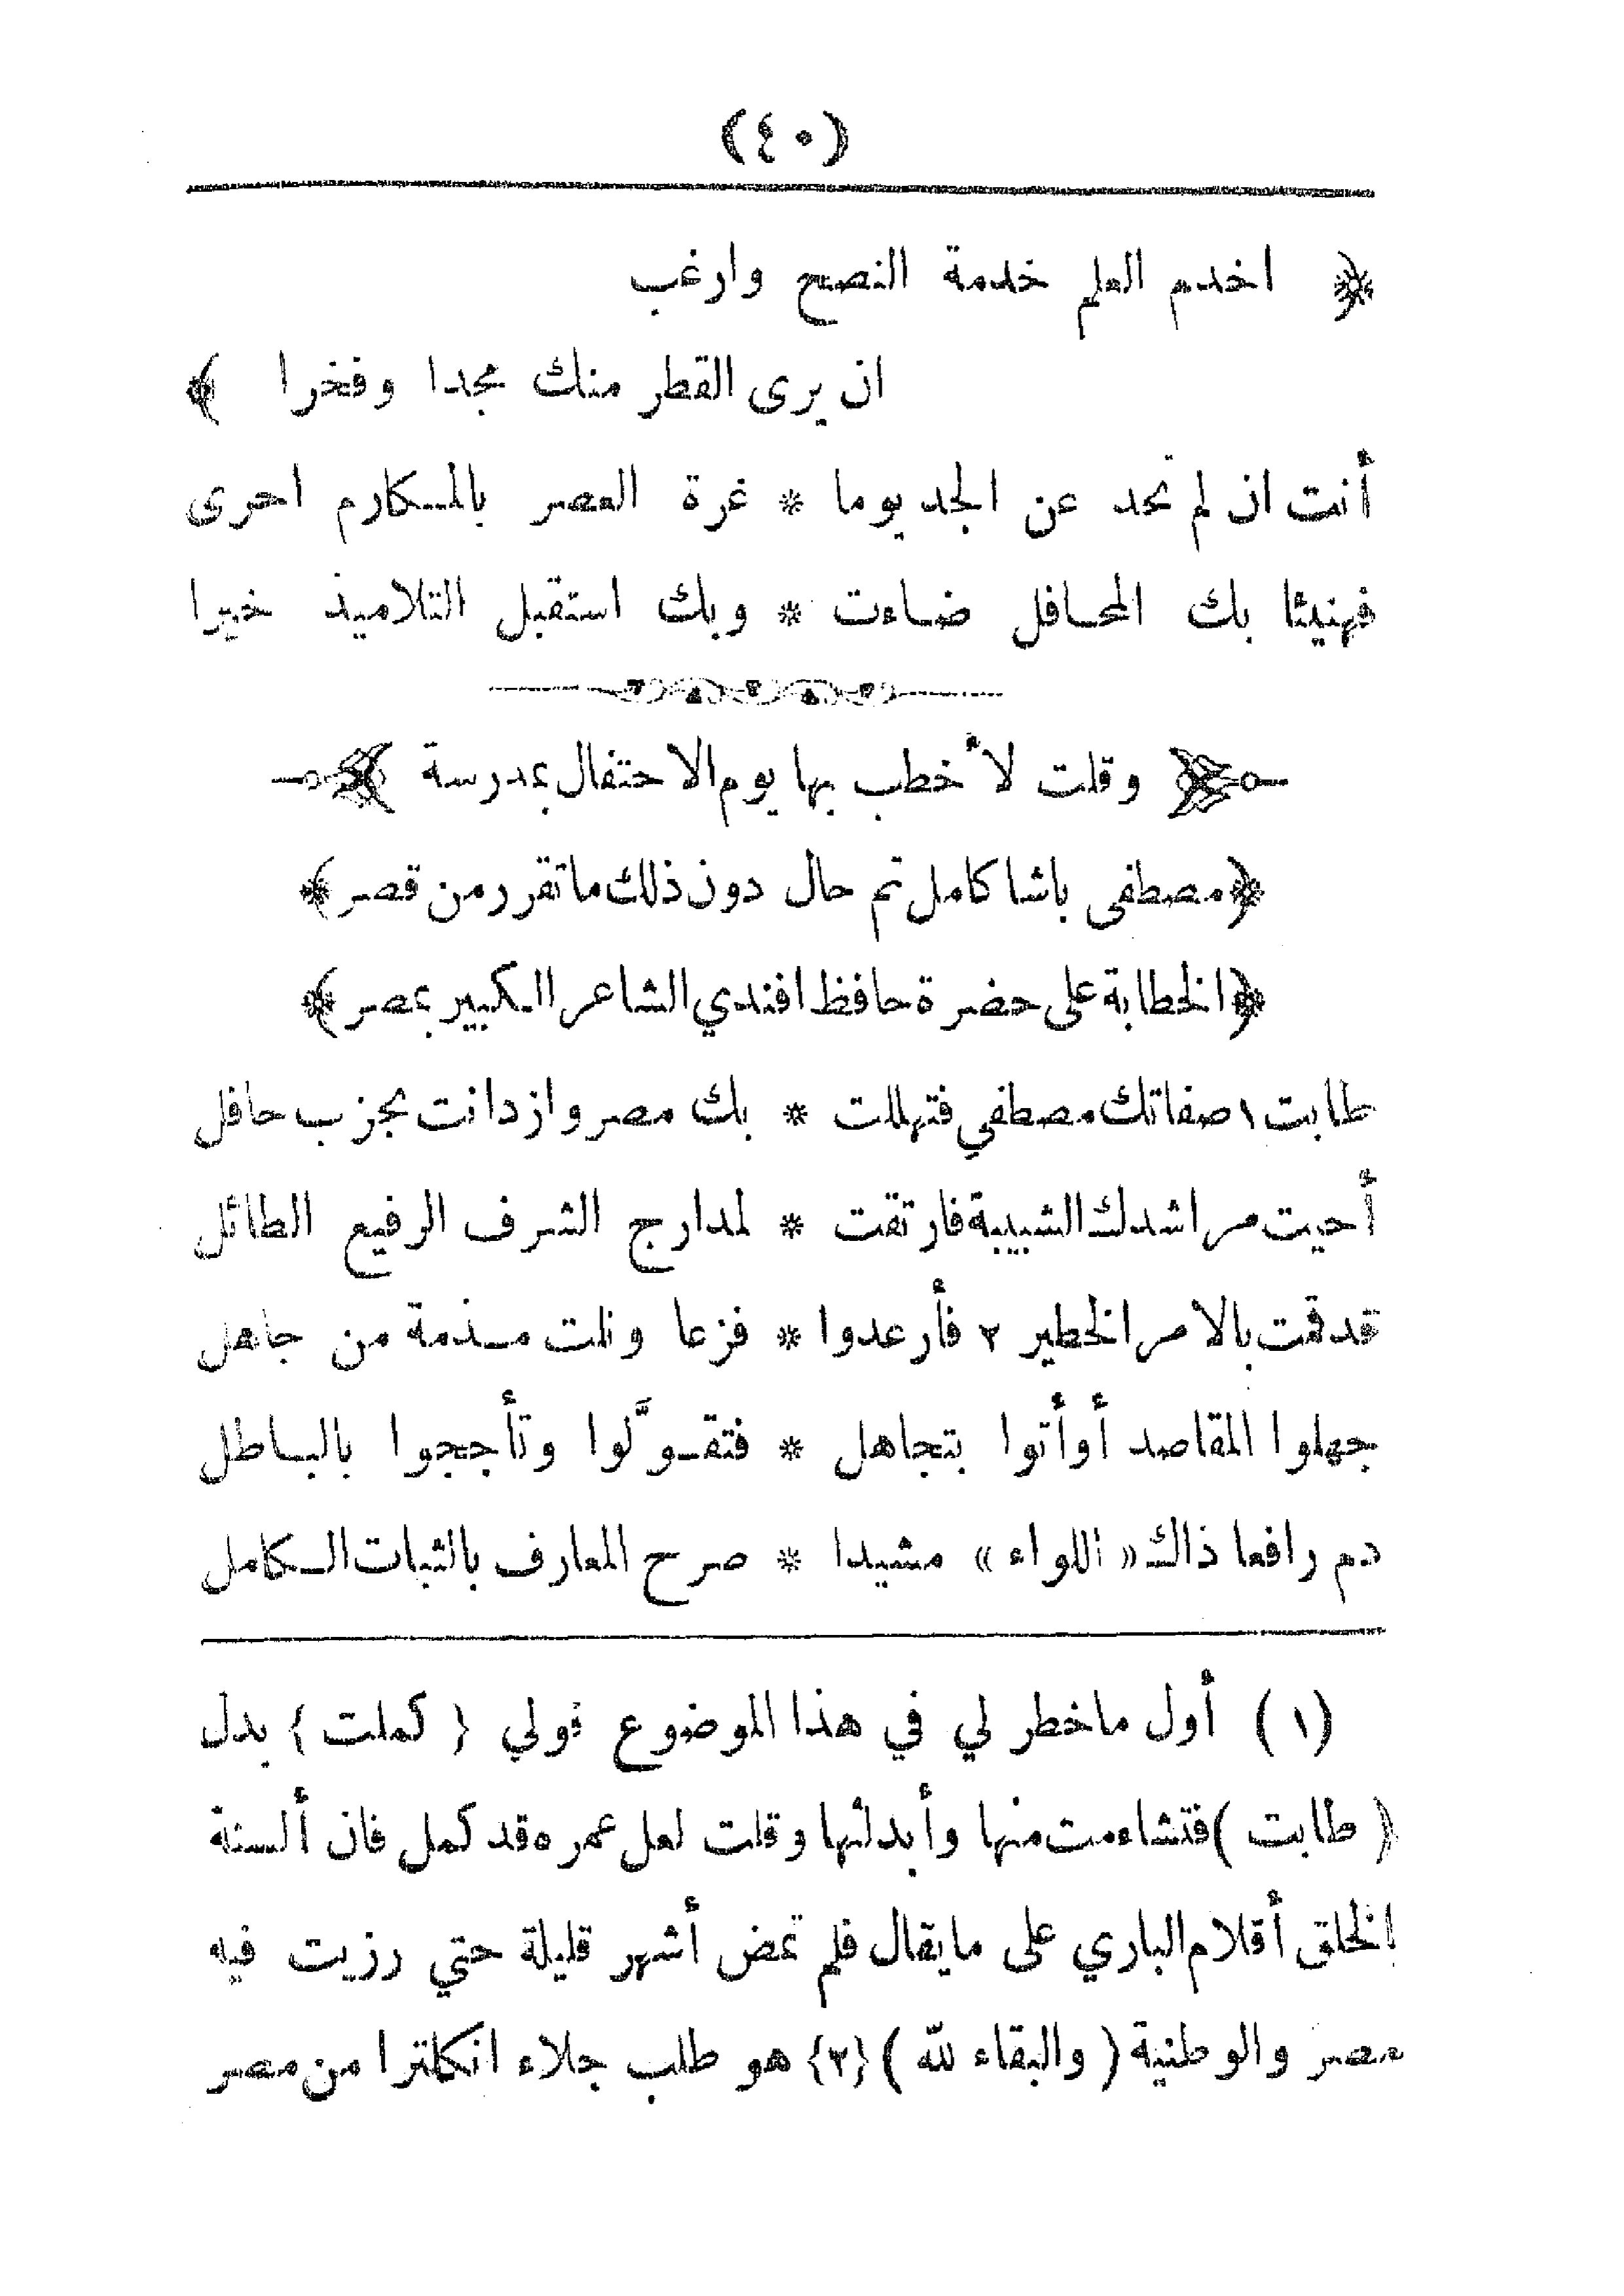 (٤٠)
﴿ اخدم العلم خدمة النصح وارغب
ان يرى القطر منك مجدا وفخرا ﴾
أنت ان لم تحد عن الجد يوما * غرة العصر بالمكارم احرى
فهنيئا بك المحافل ضاءت * وبك استقبل التلاميذ خيرا
وقلت لأخطب بها يوم الاحتفال بمدرسة
﴿مصطفى باشا كامل ثم حال دون ذلك ما تقرر من قصر﴾
﴿الخطابة على حضرة حافظ افندي الشاعر الكبير بمصر﴾
طابت ١ صفاتك مصطفي فتهللت * بك مصر وازدانت بحزب حافل
أحيت مراشدك الشبيبة فارتقت * لمدارج الشرف الرفيع الطائل
قد قمت بالامر الخطير ٢ فأرعدوا * فزعا ونلت مذمة من جاهل
جهلوا المقاصد أو أتوا بتجاهل * فتقوَّلوا وتأججوا بالباطل
دم رافعا ذاك « اللواء » مشيدا * صرح المعارف بالثبات الكامل
(١) أول ما خطر لي في هذا الموضوع قولي { كملت } بدل
( طابت ) فتشاءمت منها وأبدلتها وقلت لعل عمره قد كمل فان ألسنة
الخلق أقلام الباري على ما يقال فلم تمض أشهر قليلة حتي رزيت فيه
مصر والوطنية ( والبقاء لله ) {٢} هو طلب جلاء انكلترا من مصر